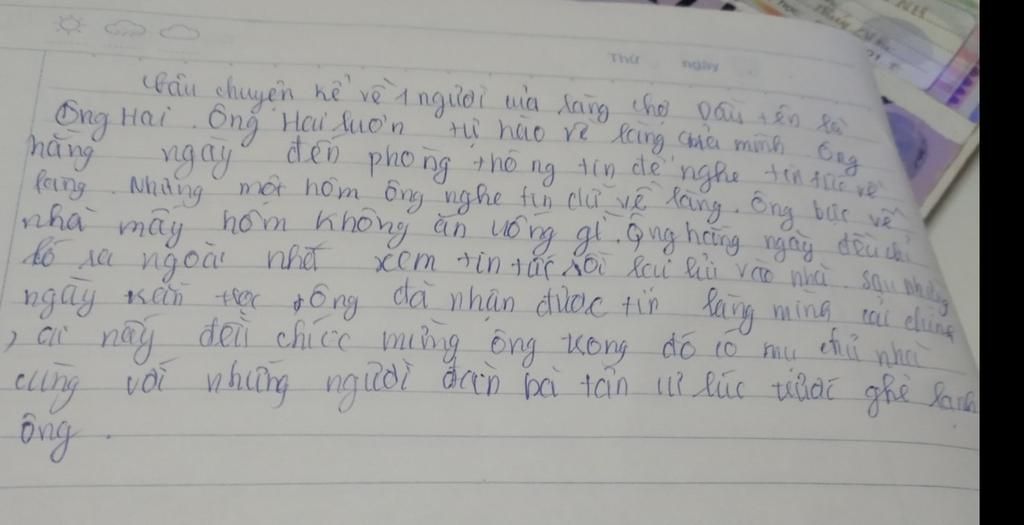 Thứ ngày
Câu chuyện kể về 1 người của làng chợ Dầu tên là
Ông Hai. Ông Hai luôn tự hào về làng của mình ông
hằng ngày đến phòng thông tin để nghe tin tức về
làng. Nhưng một hôm ông nghe tin dữ về làng. Ông bực về
nhà mấy hôm không ăn uống gì. Ông hằng ngày đều chỉ
ló ra ngoài nhà xem tin tức rồi lại lủi vào nhà. sau những
ngày ông đã nhận được tin làng mình cải chính
, ai nấy đều chúc mừng ông trong đó có mụ chủ nhà
cùng với những người đàn bà tản cư lúc trước ghẻ lạnh
ông.